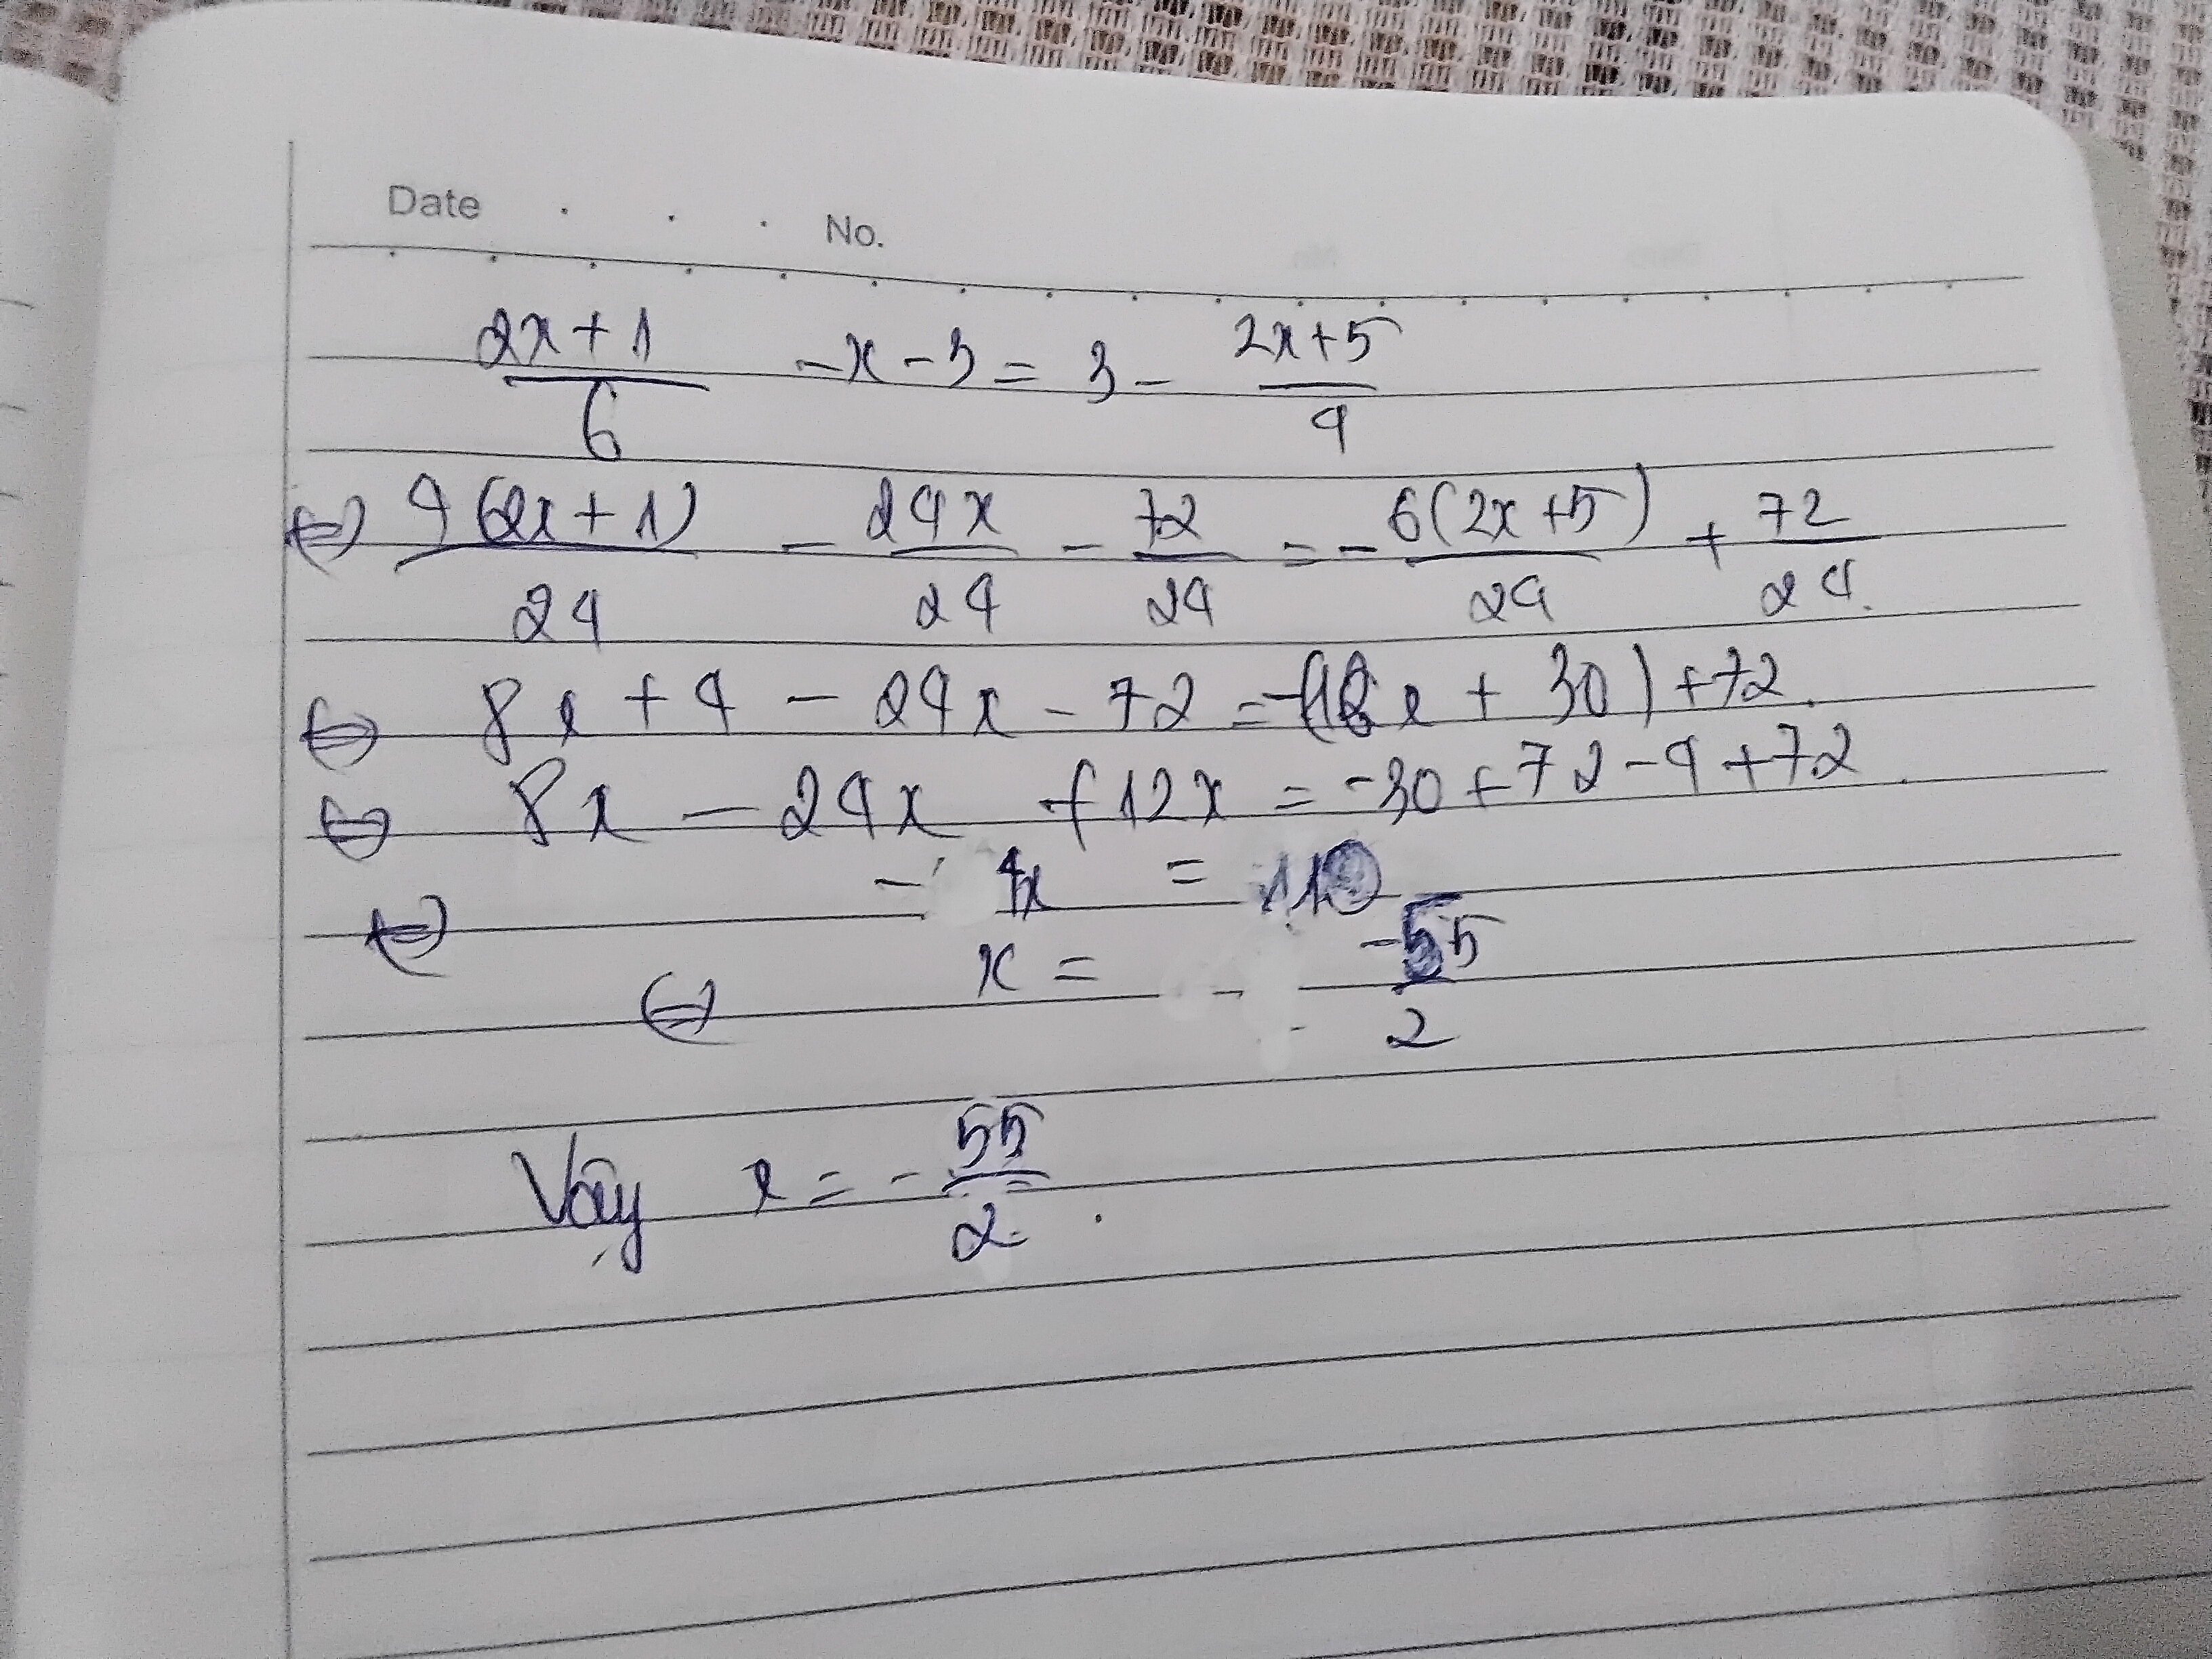 Date . . . No.
2x+1/6 -x-3 = 3- 2x+5/4
⇔ 4(2x+1)/24 - 24x/24 - 72/24 = - 6(2x+5)/24 + 72/24.
⇔ 8x + 4 - 24x - 72 = -(12x + 30) + 72.
⇔ 8x - 24x + 12x = -30 + 72 - 4 + 72.
⇔ - 4x = 110
⇔ x = -55/2
Vậy x = - 55/2.